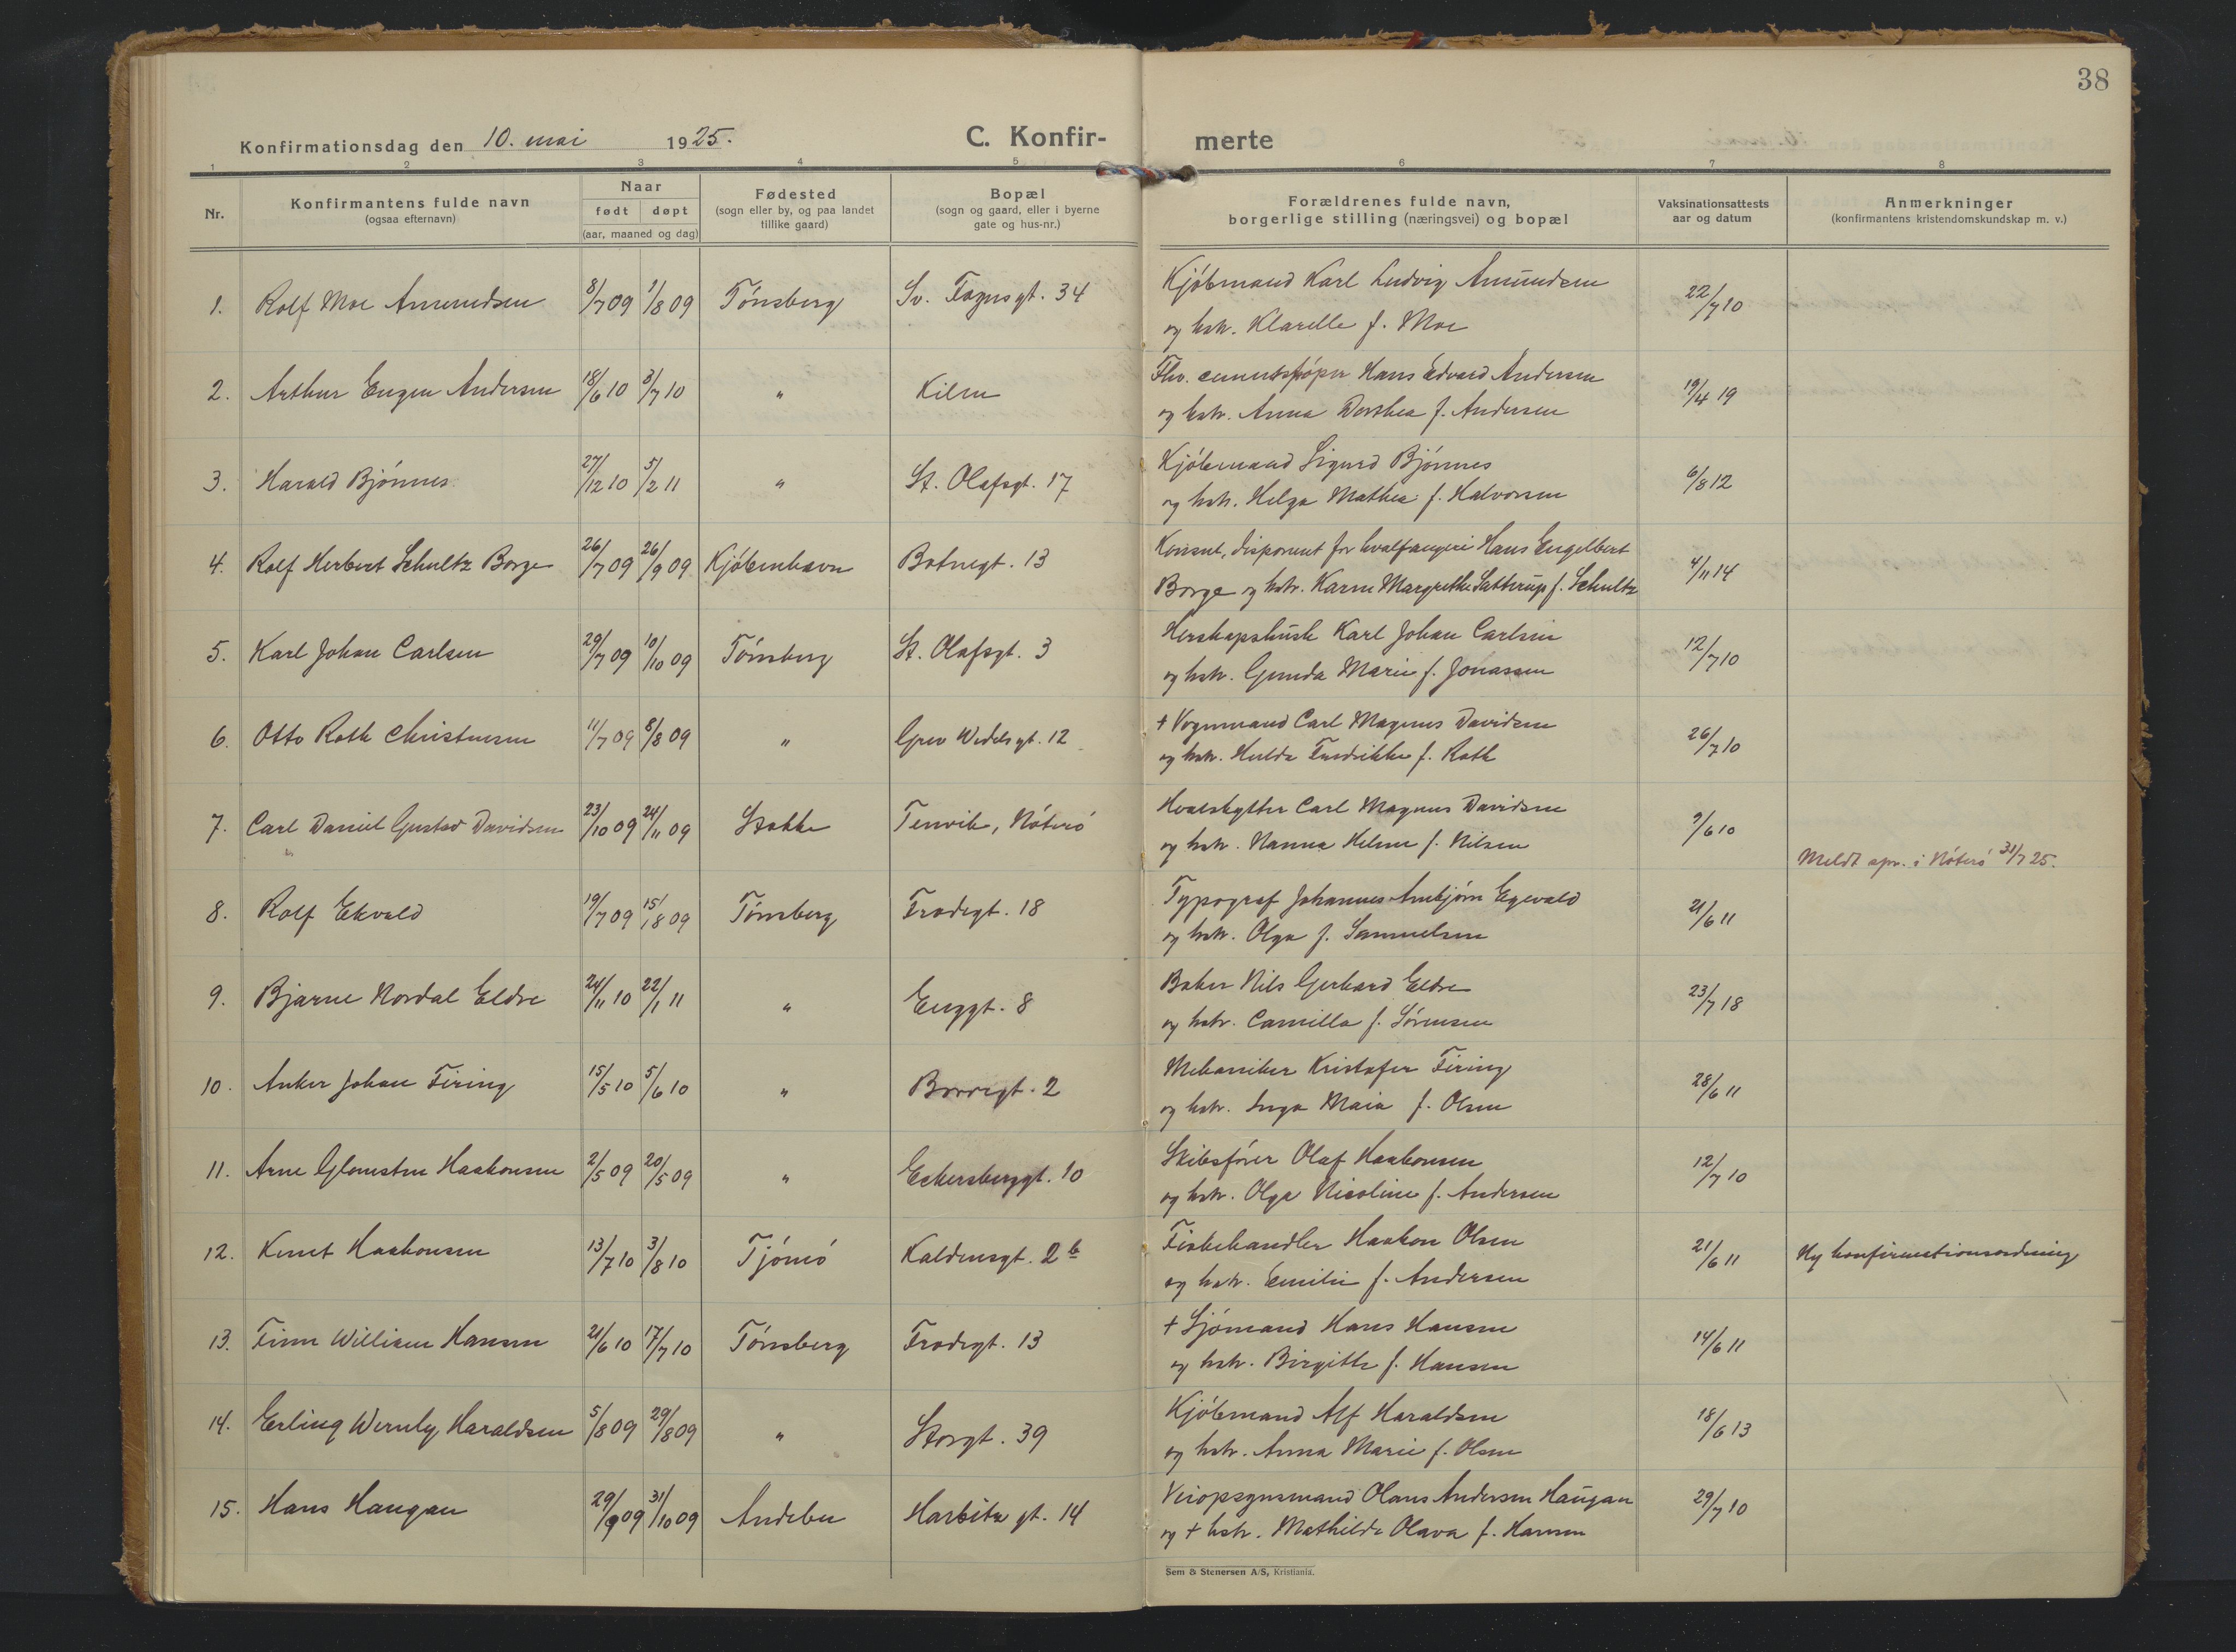 38
Konfirmationsdag den 10. mai 1925.
C. Konfir-merte
1 2 3 4 5 6 7 8
Nr.
Konfirmantens fulde navn
(ogsaa efternavn)
Naar
født døpt
(aar, maaned og dag)
Fødested
(sogn eller by, og paa landet
tillike gaard)
Bopæl
(sogn og gaard, eller i byerne
gate og hus-nr.)
Forældrenes fulde navn,
borgerlige stilling (næringsvei) og bopæl
Vaksinationsattests
aar og datum
Anmerkninger
(konfirmantens kristendomskundskap m. v.)
1. Rolf Moe Amundsen 8/7 09 1/8 09 Tønsberg Sv. Foynsgt. 34 Kjøbmand Karl Ludvig Amundsen 22/7 10
og hstr. Klarelle f. Moe
2. Arthur Eugen Andersen 18/6 10 3/7 10 " Kilen Fhv. cementstøper Hans Edvard Andersen 19/4 19
og hstr. Anna Dorthea f. Andersen
3. Harald Bjønnes 27/12 10 5/2 11 " St. Olafsgt. 17 Kjøbmand Sigurd Bjønnes 6/8 12
og hstr. Helga Mathea f. Halvorsen
4. Rolf Herbert Schultz Borge 26/7 09 26/9 09 Kjøbenhavn Botnegt. 13 Konsul, disponent for hvalfangeri Hans Engelbert 4/11 14
Borge og hstr. Karen Margrethe Satterup f. Schultz
5. Karl Johan Carlsen 29/7 09 10/10 09 Tønsberg St. Olafsgt. 3 Herskapskusk Karl Johan Carlsen 12/7 10
og hstr. Gunda Marie f. Jonassen
6. Otto Roth Christensen 11/7 09 8/8 09 " Grev Wedelsgt. 12 + Vognmand Carl Magnus Davidsen 26/7 10
og hstr. Hulda Fredrikke f. Roth
7. Carl Daniel Gustav Davidsen 23/10 09 24/11 09 Stokke Tenvik, Nøterø Hvalskytter Carl Magnus Davidsen 9/6 10
og hstr. Nanna Helene f. Nilsen
Meldt spr. i Nøterø 31/7 25.
8. Rolf Ekvald 19/7 09 15/8 09 Tønsberg Frodegt. 18 Typograf Johannes Anbjørn Egevald 21/6 11
og hstr. Olga f. Samuelsen
9. Bjarne Nordal Eldre 24/11 10 22/1 11 " Enggt. 8 Baker Nils Gerhard Eldre 23/7 18
og hstr. Camilla f. Sørensen
10. Anker Johan Firing 15/5 10 5/6 10 " Borregt. 2 Mekaniker Kristofer Firing 28/6 11
og hstr. Inga Maia f. Olsen
11. Arne Glomsten Haakonsen 2/5 09 20/5 09 " Eckersbergt. 10 Skibsfører Olaf Haakonsen 12/7 10
og hstr. Olga Nicoline f. Andersen
12. Knut Haakonsen 13/7 10 3/8 10 Tjømø Kaldnesgt. 2b Fiskehandler Haakon Olsen 21/6 11 Ny konfirmationsordning
og hstr. Emilie f. Andersen
13. Finn William Hansen 21/6 10 17/7 10 Tønsberg Frodegt. 13 + Sjømand Hans Hansen 14/6 11
og hstr. Birgitte f. Hansen
14. Erling Wernly Haraldsen 5/8 09 29/8 09 " Storgt. 39 Kjøbmand Alf Haraldsen 18/6 13
og hstr. Anna Marie f. Olsen
15. Hans Haugan 29/9 09 31/10 09 Andebu Harbitz gt. 14 Veiopsynsmand Olaus Andersen Haugan 29/7 10
og + hstr. Mathilde Olava f. Hansen
Sem & Stenersen A/S, Kristiania.